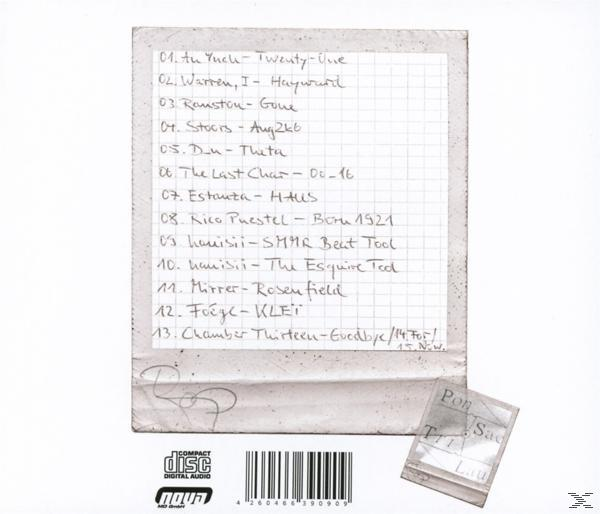 01. An Ynch - Twenty-One
02. Warren, I - Hayward
03. Ranston - Gone
04. Stoors - Aug2k6
05. D_n - Theta
06. The Last Char - 00_16
07. Estanza - HAUS
08. Rico Puestel - Born 1921
09. hanisii - SMMR Beat Tool
10. hanisii - The Esquire Tool
11. Mirrer - Rosenfield
12. Foégc - KLEI
13. Chamber Thirteen - Goodbye / 14. For /
15. Now.
Pon
Sac
Tri
Lau
COMPACT
disc
DIGITAL AUDIO
nova
MD GmbH
4 260466 390909